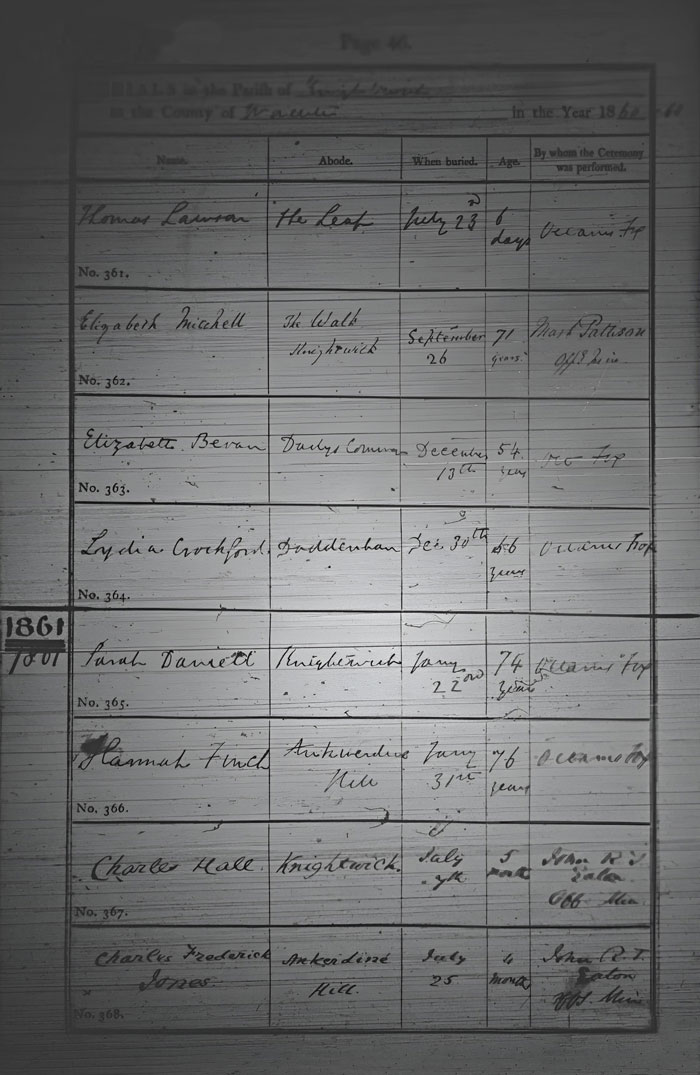 Page 46.
BURIALS in the Parish of Knightwick
in the County of Worcester in the Year 1860
Name. Abode. When buried. Age. By whom the Ceremony was performed.
Thomas Lawson The Leap July 23d 6 days Octavius Fox
No. 361.
Elizabeth Mitchell The Walk Knightwick September 26 71 years Mark Pattison Offg Min
No. 362.
Elizabeth Bevan Common December 13th 54 years Fox
No. 363.
Lydia Crockford Doddenham Dec 30th years Octavius Fox
No. 364.
1861
1861
Sarah Daniell Knightwick Jany 22nd 74 years Octavius Fox
No. 365.
Hannah Finch Ankerdine Hill Jany 31st 76 years Octavius Fox
No. 366.
Charles Hall. Knightwick. July 7th 5 month John R. T. Eaton Off Min.
No. 367.
Charles Frederick Jones. Ankerdine Hill. July 25 4 months John R. T. Eaton Off. Min.
No. 368.